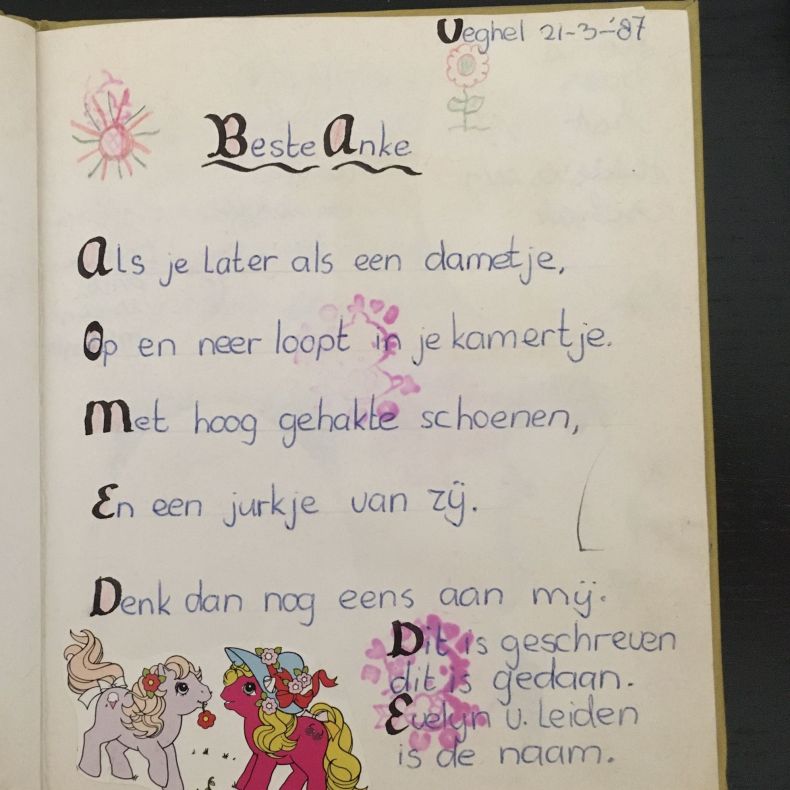 Veghel 21-3-'87
Beste Anke
Als je later als een dametje,
Op en neer loopt in je kamertje.
Met hoog gehakte schoenen,
En een jurkje van zij.
Denk dan nog eens aan mij.
Dit is geschreven
dit is gedaan.
Evelyn v. Leiden
is de naam.